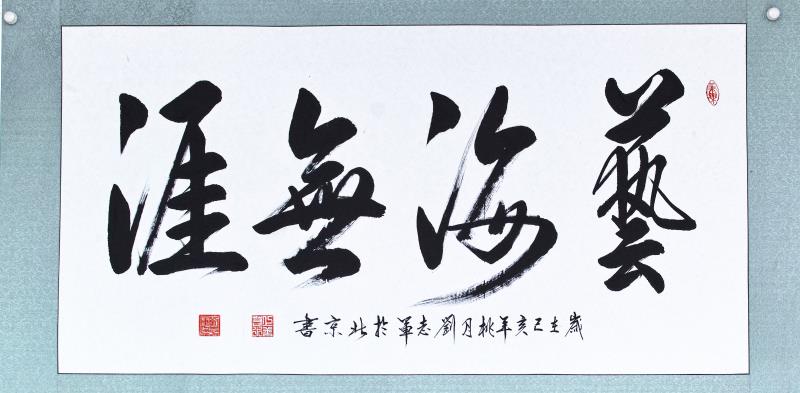 藝海無涯
歲在己亥年桃月劉志軍於北京書